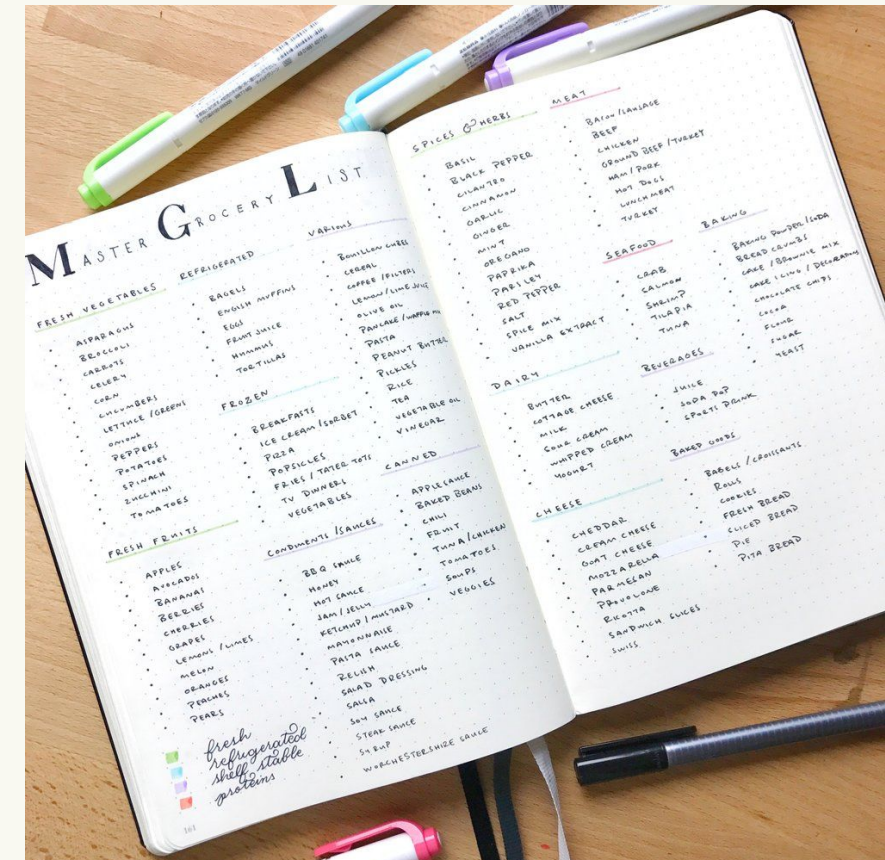 MASTER GROCERY LIST
FRESH VEGETABLES
ASPARAGUS
BROCCOLI
CARROTS
CELERY
CORN
CUCUMBERS
LETTUCE / GREENS
ONIONS
PEPPERS
POTATOES
SPINACH
ZUCCHINI
TOMATOES
FRESH FRUITS
APPLES
AVOCADOS
BANANAS
BERRIES
CHERRIES
GRAPES
LEMONS / LIMES
MELON
ORANGES
PEACHES
PEARS
fresh
refrigerated
shelf stable
proteins
161
REFRIGERATED
BAGELS
ENGISH MUFFINS
EGGS
FRUIT JUICE
HUMMUS
TORTILLAS
FROZEN
BREAKFASTS
ICE CREAM / SORBET
PIZZA
POPSICLES
FRIES / TATER TOTS
TV DINNERS
VEGETABLES
CONDIMENTS / SAUCES
BBQ SAUCE
HONEY
HOT SAUCE
JAM / JELLY
KETCHUP / MUSTARD
MAYONNAISE
PASTA SAUCE
RELISH
SALAD DRESSING
SALSA
SOY SAUCE
STEAK SAUCE
SYRUP
WORCHESTERSHIRE SAUCE
VARIOUS
BOUILLON CUBES
CEREAL
COFFEE / FILTERS
LEMON / LIME JUICE
OLIVE OIL
PANCAKE / WAFFLE MIX
PASTA
PEANUT BUTTER
PICKLES
RICE
TEA
VEGETABLE OIL
VINEGAR
CANNED
APPLESAUCE
BAKED BEANS
CHILI
FRUIT
TUNA / CHICKEN
TOMATOES
SOUPS
VEGGIES
SPICES & HERBS
BASIL
BLACK PEPPER
CILANTRO
CINNAMON
GARLIC
GINGER
MINT
OREGANO
PAPRIKA
PARSLEY
RED PEPPER
SALT
SPICE MIX
VANILLA EXTRACT
DAIRY
BUTTER
COTTAGE CHEESE
MILK
SOUR CREAM
WHIPPED CREAM
YOGURT
CHEESE
CHEDDAR
CREAM CHEESE
GOAT CHEESE
MOZZARELLA
PARMESAN
PROVOLONE
RICOTTA
SANDWICH SLICES
SWISS
MEAT
BACON / SAUSAGE
BEEF
CHICKEN
GROUND BEEF / TURKEY
HAM / PORK
HOT DOGS
LUNCHMEAT
TURKEY
SEAFOOD
CRAB
SALMON
SHRIMP
TILAPIA
TUNA
BEVERAGES
JUICE
SODA POP
SPORTS DRINK
BAKED GOODS
BABELS / CROISSANTS
ROLLS
COOKIES
FRESH BREAD
SLICED BREAD
PIE
PITA BREAD
BAKING
BAKING POWDER / SODA
BREAD CRUMBS
CAKE / BROWNIE MIX
CAKE ICING / DECORATIONS
CHOCOLATE CHIPS
COCOA
FLOUR
SUGAR
YEAST